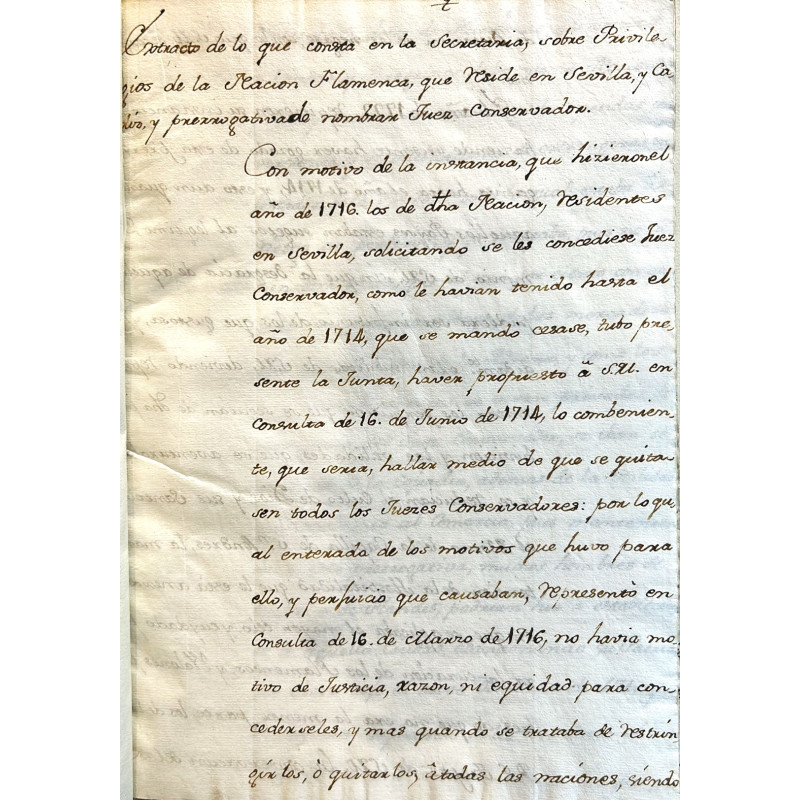 Extracto de lo que consta en la Secretaria, sobre Privile
gios de la Nacion Flamenca, que reside en Sevilla, y Ca
diz, y prerrogativa de nombrar Juez Conservador.
Con motivo de la instancia, que hizieron el
año de 1716. los de dha Nacion, residentes
en Sevilla, solicitando se les concediese Juez
Conservador, como le havian tenido hasta el
año de 1714, que se mandó cesase, tubo pre-
sente la Junta, haver propuesto â S.M. en
Consulta de 16. de Junio de 1714, lo combenien-
te, que seria, hallar medio de que se quita-
sen todos los Juezes Conservadores: por lo qu.
al enterado de los motivos que huvo para
ello, y perjuicio que causaban, representò en
Consulta de 16. de Marzo de 1716, no havia mo-
tivo de Justicia, razon, ni equidad para con-
cederseles, y mas quando se trataba de restrin
girlos, ò quitarlos, â todas las naciones, siendo